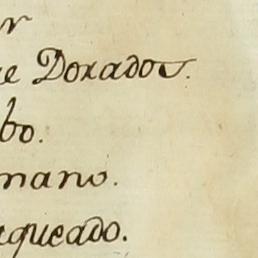 r
e Dorados.
bo.
mano.
aqueado.